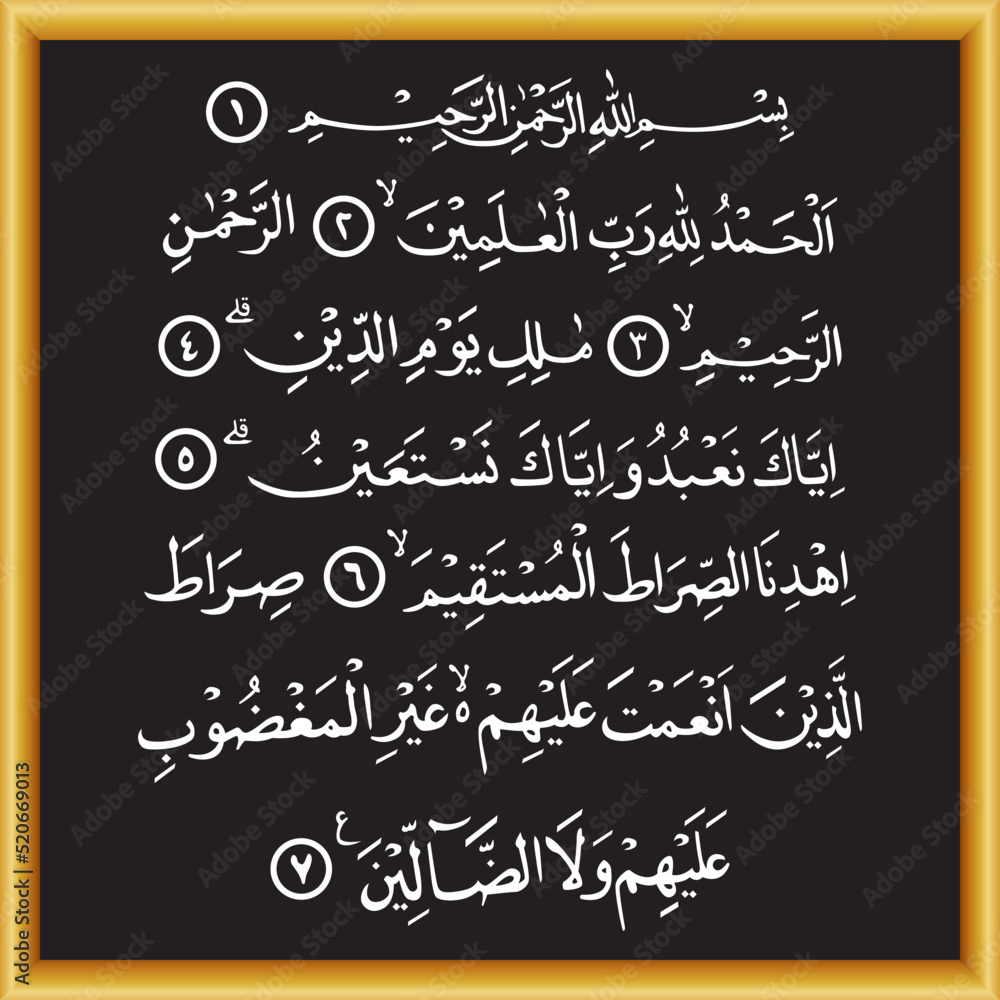 بِسْمِ اللهِ الرَّحْمٰنِ الرَّحِيْمِ ١
اَلْحَمْدُ لِلهِ رَبِّ الْعٰلَمِيْنَ ۙ ٢ الرَّحْمٰنِ
الرَّحِيْمِ ۙ ٣ مٰلِكِ يَوْمِ الدِّيْنِ ۗ ٤
اِيَّاكَ نَعْبُدُ وَاِيَّاكَ نَسْتَعِيْنُ ۗ ٥
اِهْدِنَا الصِّرَاطَ الْمُسْتَقِيْمَ ۙ ٦ صِرَاطَ
الَّذِيْنَ اَنْعَمْتَ عَلَيْهِمْ ەۙ غَيْرِ الْمَغْضُوْبِ
عَلَيْهِمْ وَلَا الضَّاۤلِّيْنَ ع ٧
Adobe Stock | #520669013